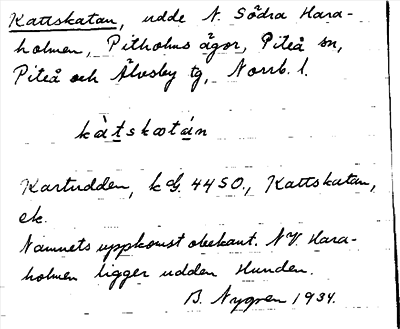 Kattskatan, udde N. Södra Hara-
holmen, Pitholms ägor, Piteå sn,
Piteå och Älvsby tg, Norrb. l.
kàt̲skatán
Kartudden, kbl. 4450., Kattskatan,
ek.
Namnets uppkomst obekant. NV. Hara-
holmen ligger udden Hunden.
B. Nygren 1934.